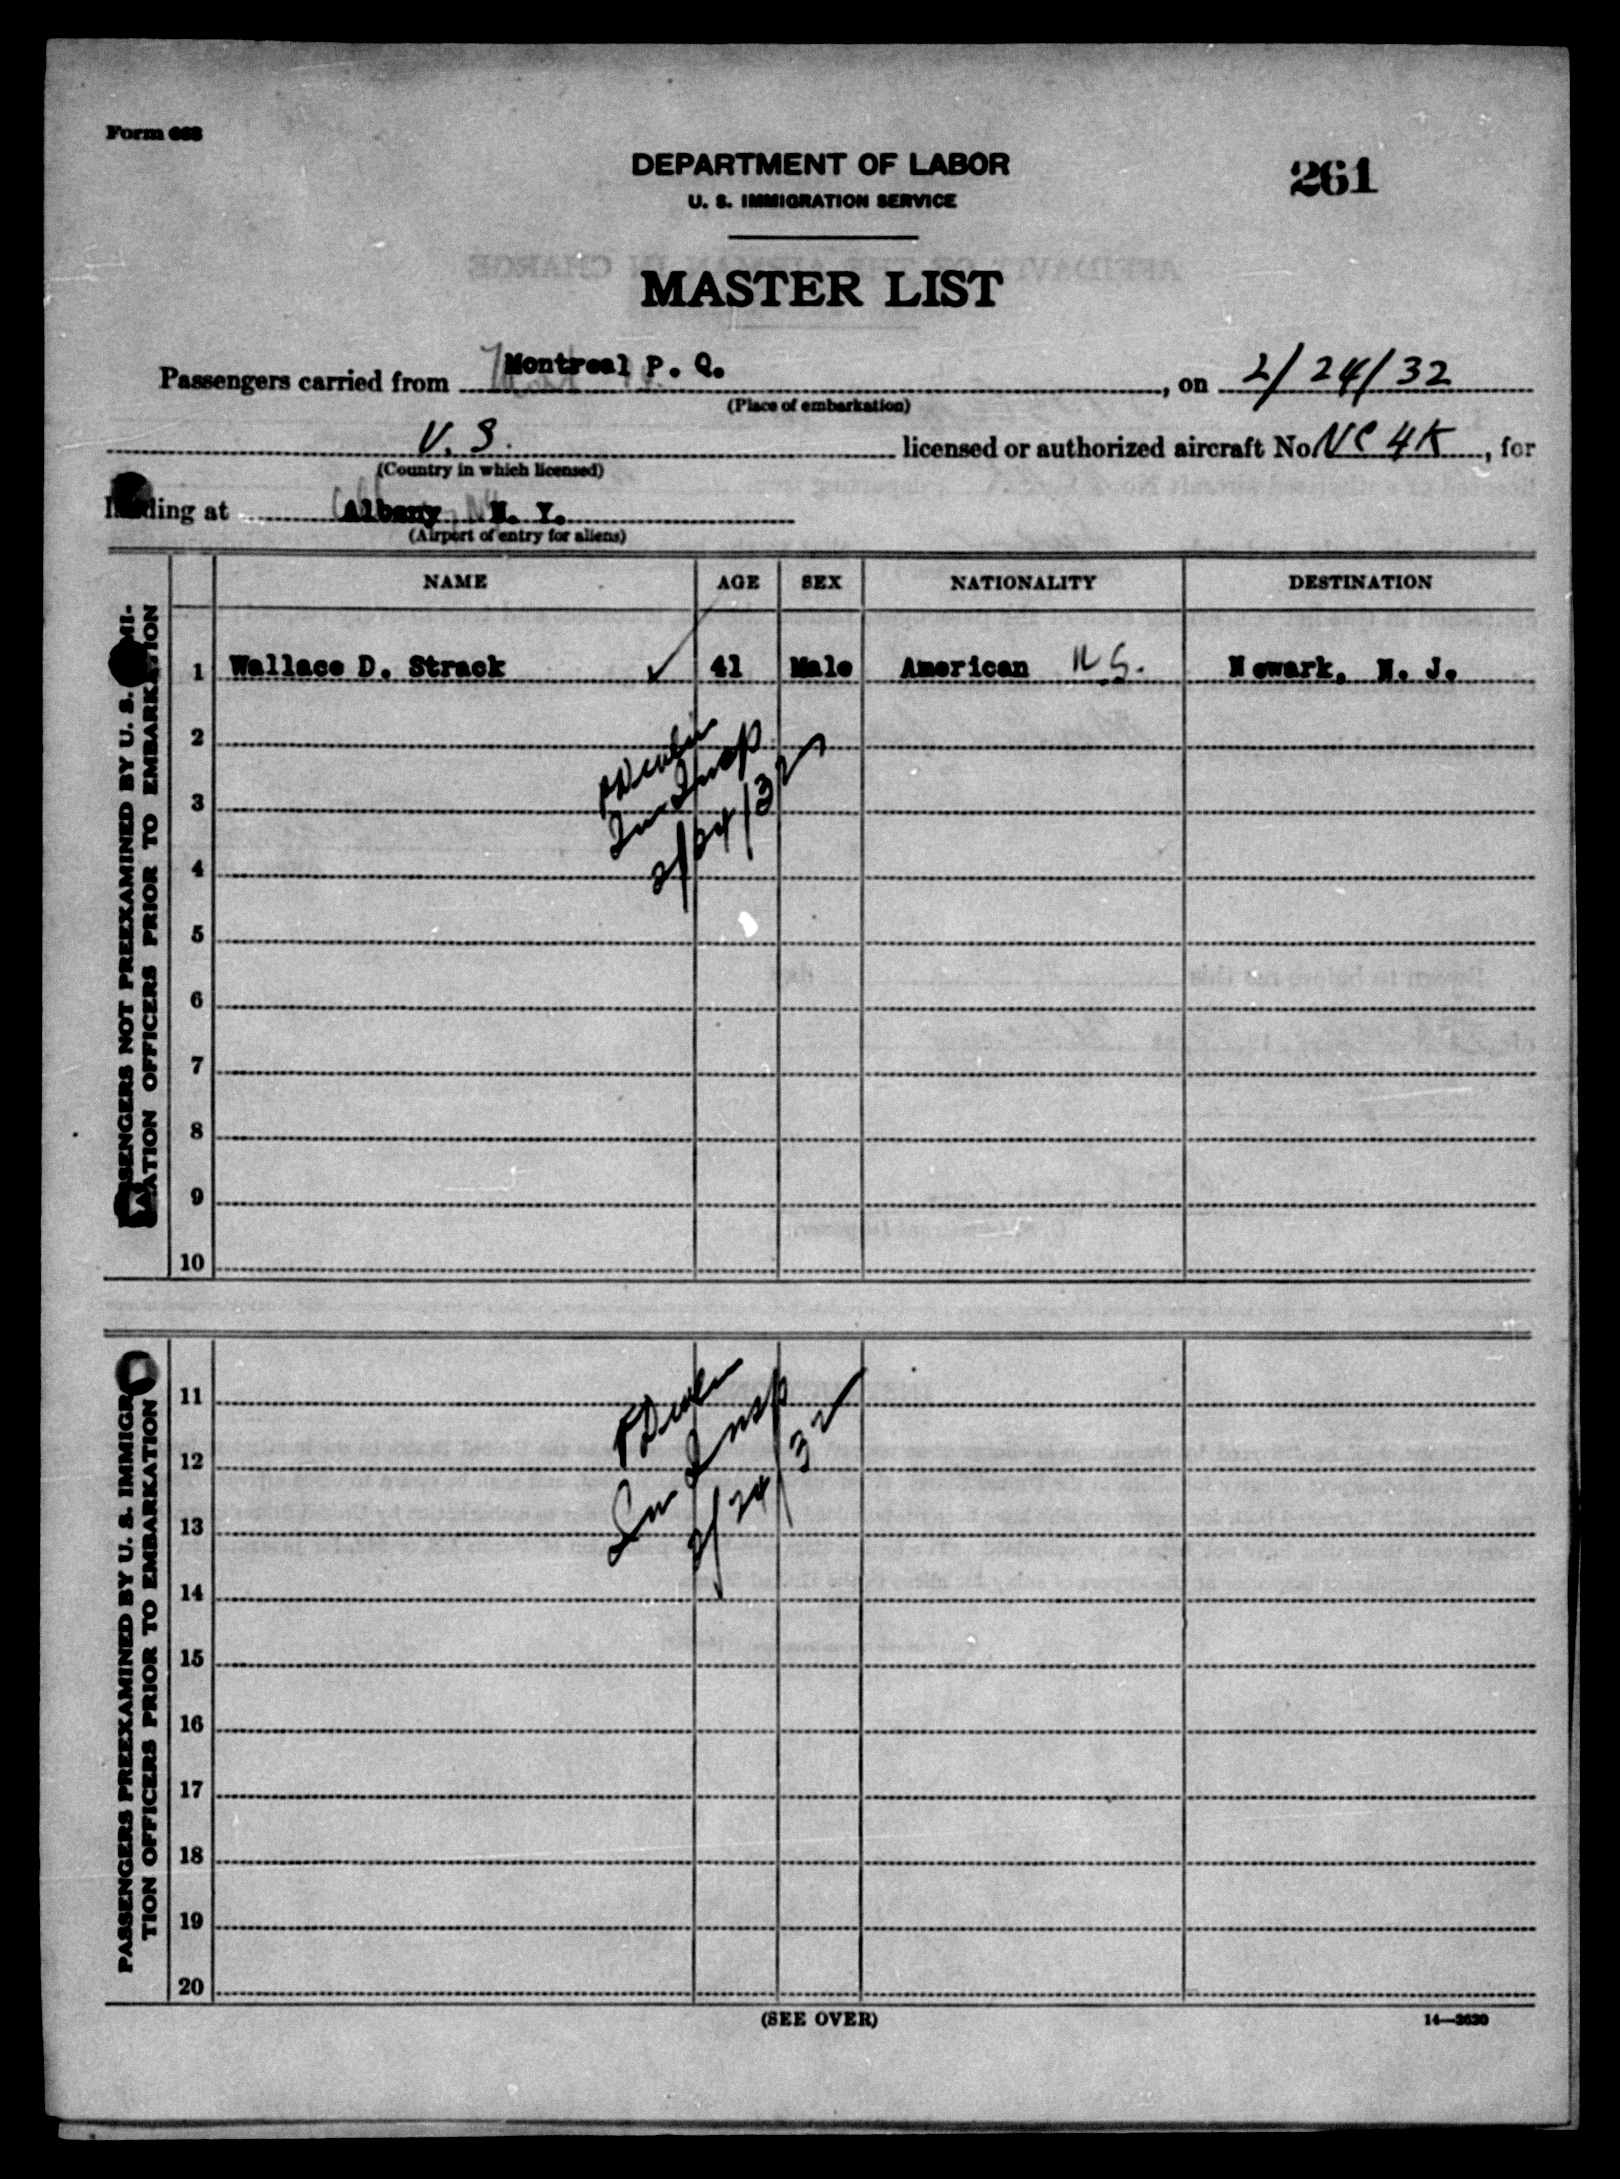 Form 668
DEPARTMENT OF LABOR
U. S. IMMIGRATION SERVICE
261
AFFIDAVIT OF THE AIRMAN IN CHARGE
MASTER LIST
Passengers carried from Montreal P. Q., on 2/24/32
(Place of embarkation)
U. S. licensed or authorized aircraft No. NC 4K, for
(Country in which licensed)
landing at Albany N. Y.
(Airport of entry for aliens)
NAME AGE SEX NATIONALITY DESTINATION
PASSENGERS NOT PREEXAMINED BY U. S. IMMI-
GRATION OFFICERS PRIOR TO EMBARKATION
1 Wallace D. Strack ✓ 41 Male American U.S. Newark, N. J.
2
3
Im Insp
2/24/32
4
5
6
7
8
9
10
PASSENGERS PREEXAMINED BY U. S. IMMIGRA-
TION OFFICERS PRIOR TO EMBARKATION
11
12
Im Insp
2/24/32
13
14
15
16
17
18
19
20
(SEE OVER)
14—2620